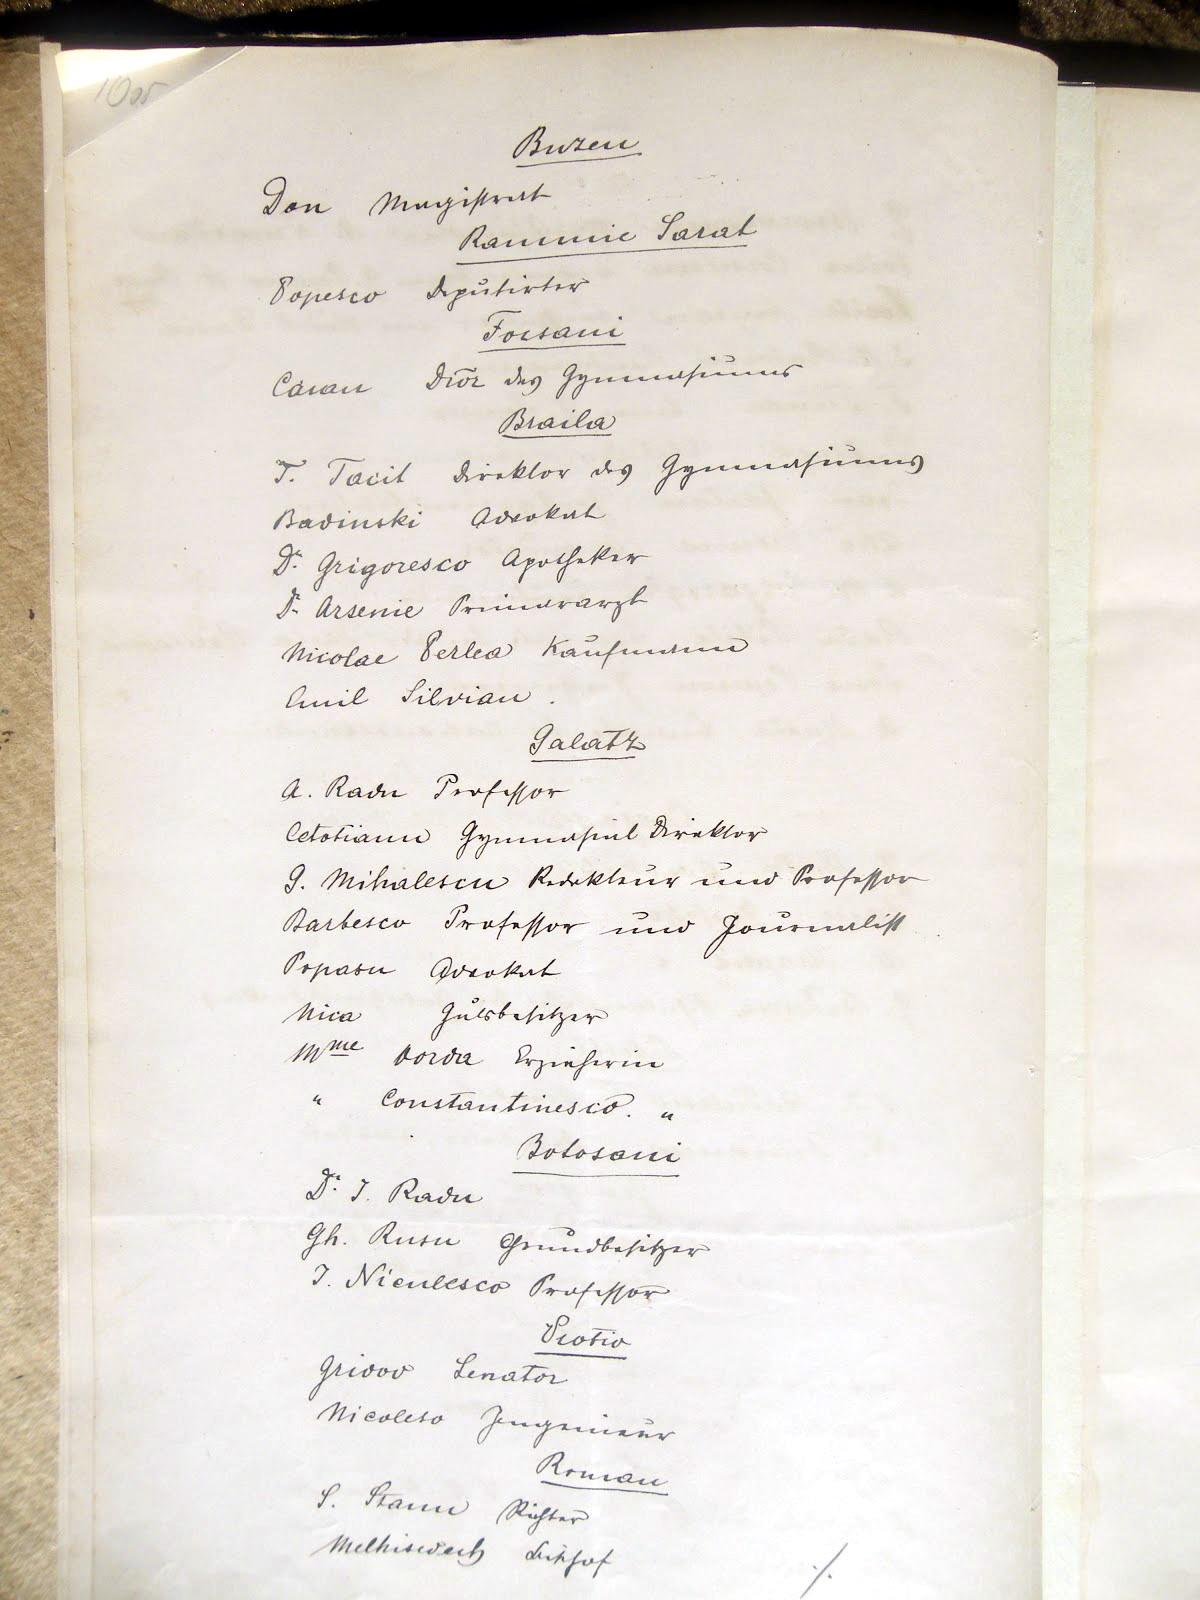 Buzeu
Dan Magistrat
Rammic Sarat
Popesco Deputirter
Focsani
Caian Dior des Gymnasiums
Braila
T. Tacit Direktor des Gymnasiums
Badinski Advokat
Dr. Grigoresco Apotheker
Dr. Arsenie Primararzt
Nicolae Perlea Kaufmann
Emil Silvian.
Galatz
A. Radu Professor
Cetatianu Gymnasial Direktor
G. Mihalescu Redakteur und Professor
Barbesco Professor und Journalist
Popasu Advokat
Nica Gutsbesitzer
Mme Dorda Erzieherin
" Constantinesco. "
Botosani
Dr. I. Radu
Gh. Rusu Grundbesitzer
I. Niculesco Professor
Senator
Ingenieur
Roman
S. Stanu Richter
Melhisedech Bischof
./.